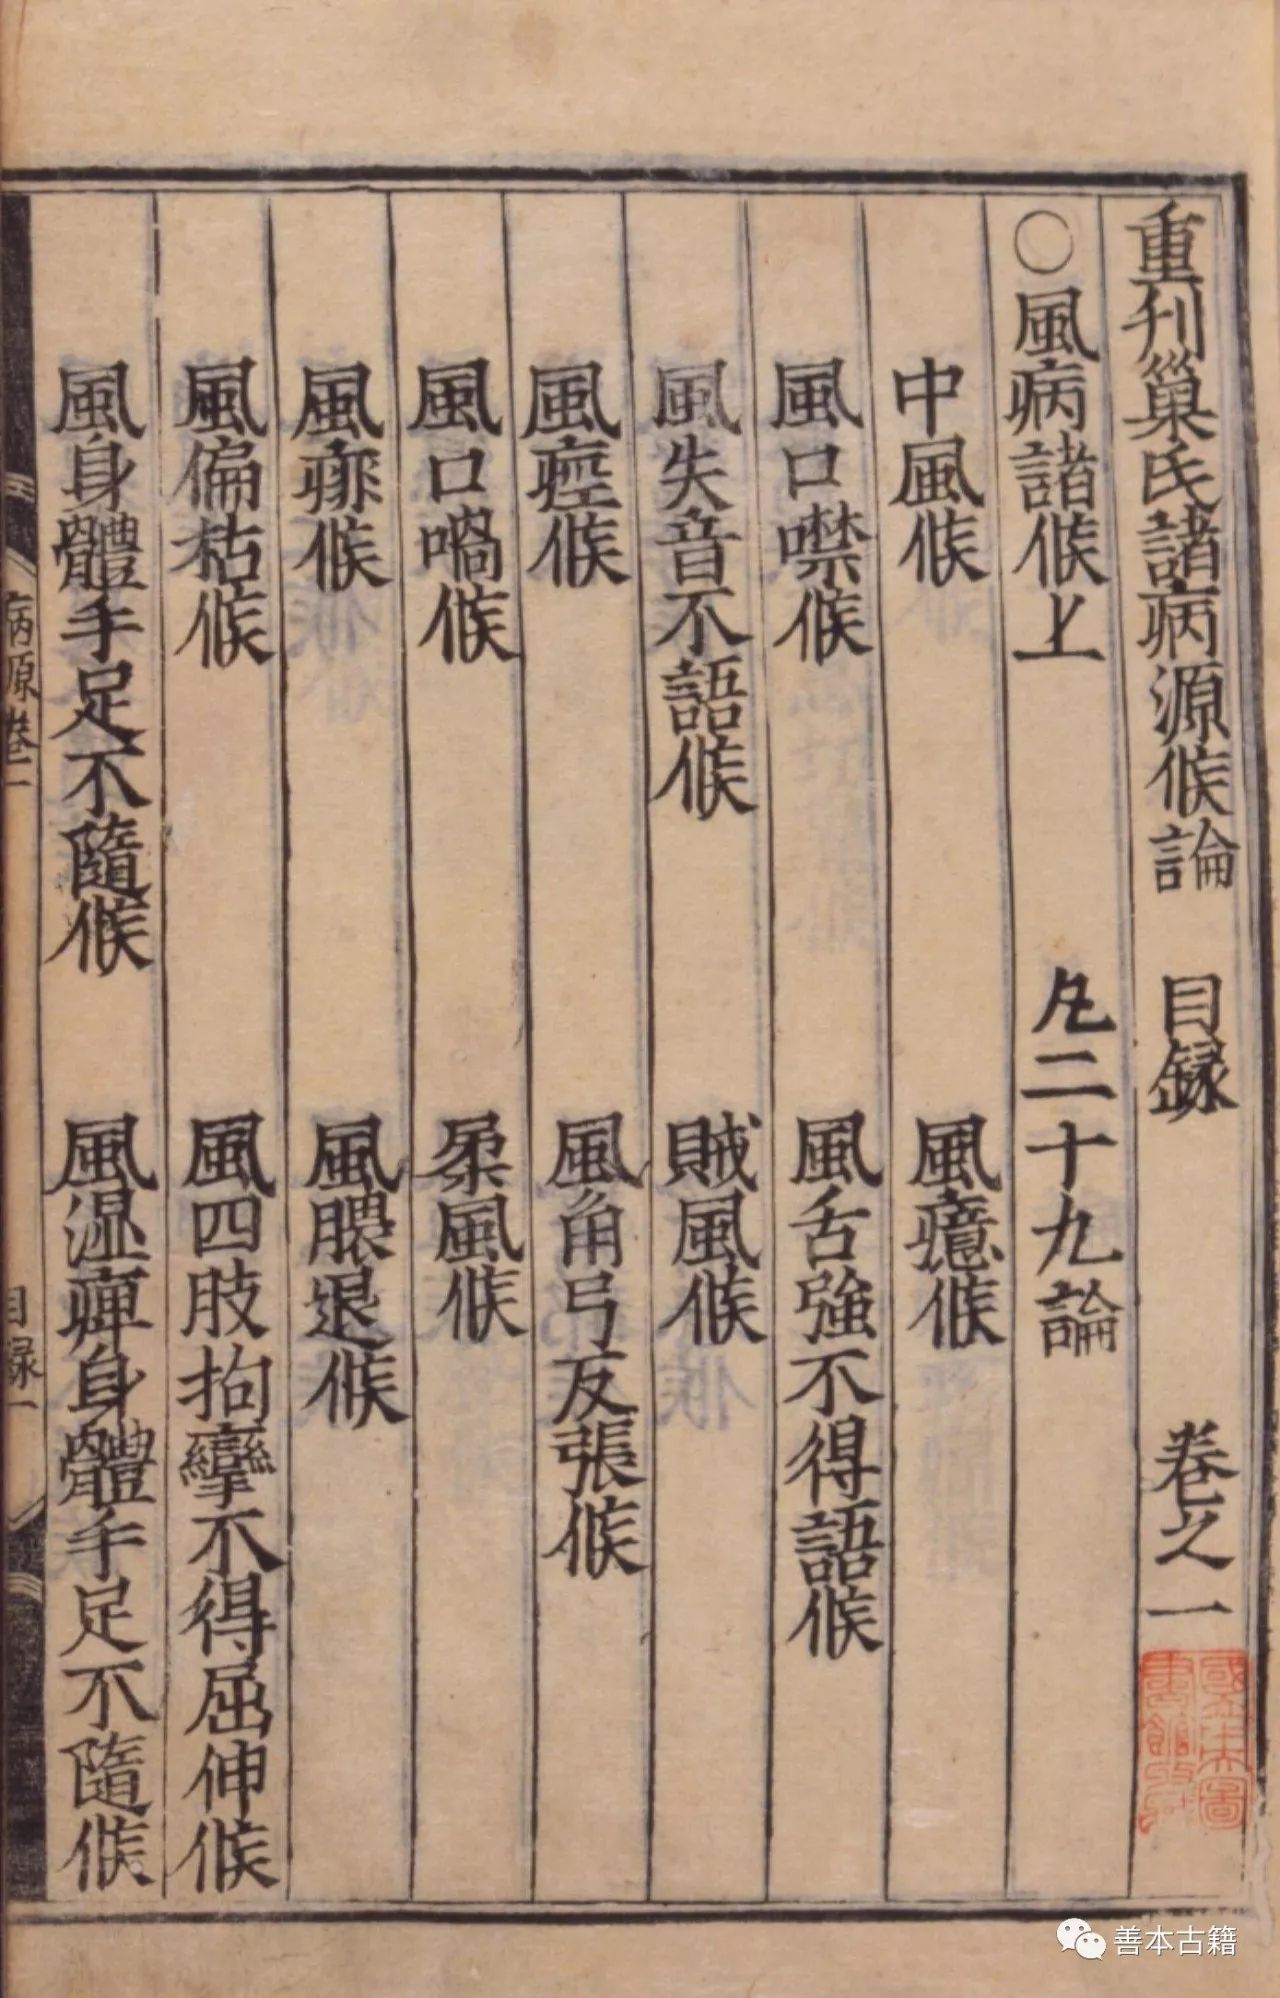 重刊巢氏諸病源候論　目録　卷之一
○風病諸候上　凡二十九論
中風候　風癔候
風口噤候　風舌強不得語候
風失音不語候　賊風候
風痙候　風角弓反張候
風口喎候　柔風候
風痱候　風腲退候
風偏枯候　風四肢拘攣不得屈伸候
風身體手足不隨候　風濕痺身體手足不隨候
病原卷一　目録一
善本古籍